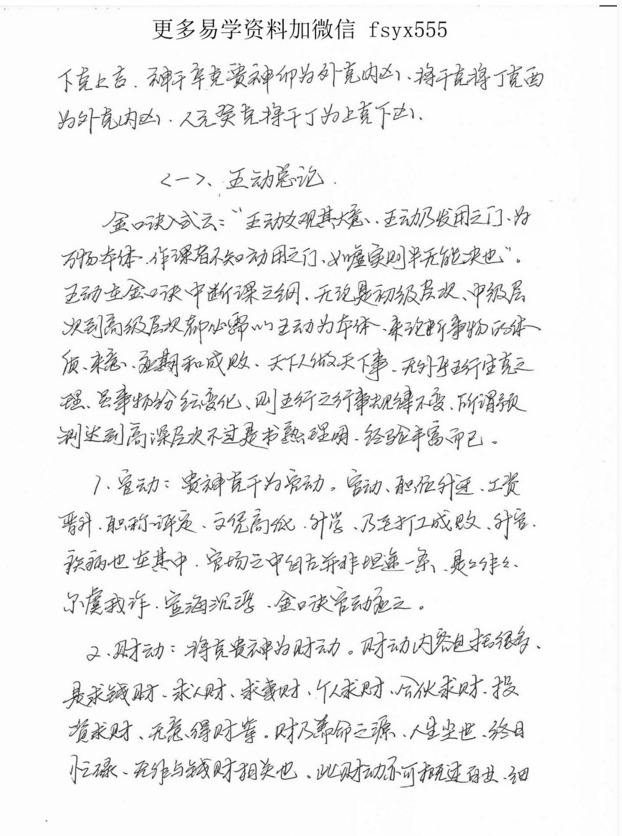 更多易学资料加微信 fsyx555
下克上吉．神干辛克贵神卯为外克内凶、将干克将丁克酉
为外克内凶．人元癸克将干丁为上克下凶．
<一>、五动总论．
金口诀入式云："五动爻观其大意、五动乃发用之门、为
万物本体．作课者不知动用之门、如嘘实则半无能决也"。
五动在金口诀中断课之纲、无论是初级层次、中级层
次到高级层次都必需以五动为本体、来论断事物的体
质、来意、应期和成败、天下人做天下事、无外乎五行生克之
理、虽事物纷纭变化、则五行之行事规律不变、所谓预
测达到高深层次不过是书熟理明、经验丰富而已。
1、官动：贵神克干为官动。官动、职位升迁、工资
晋升、职称评定、文凭高低、升学、乃至打工成败、升官、
疾病也在其中．官场之中自古并非坦途一条、是是非非、
尔虞我诈、宦海沉浮、金口诀官动应之。
2、财动：将克贵神为财动。财动内容包括很多、
是求钱财、求人财、求妻财、个人求财、合伙求财、投
资求财、无意得财等。财乃养命之源、人生尘世、终日
忙碌、无非与钱财相关也、此财动亦可概述百世、细